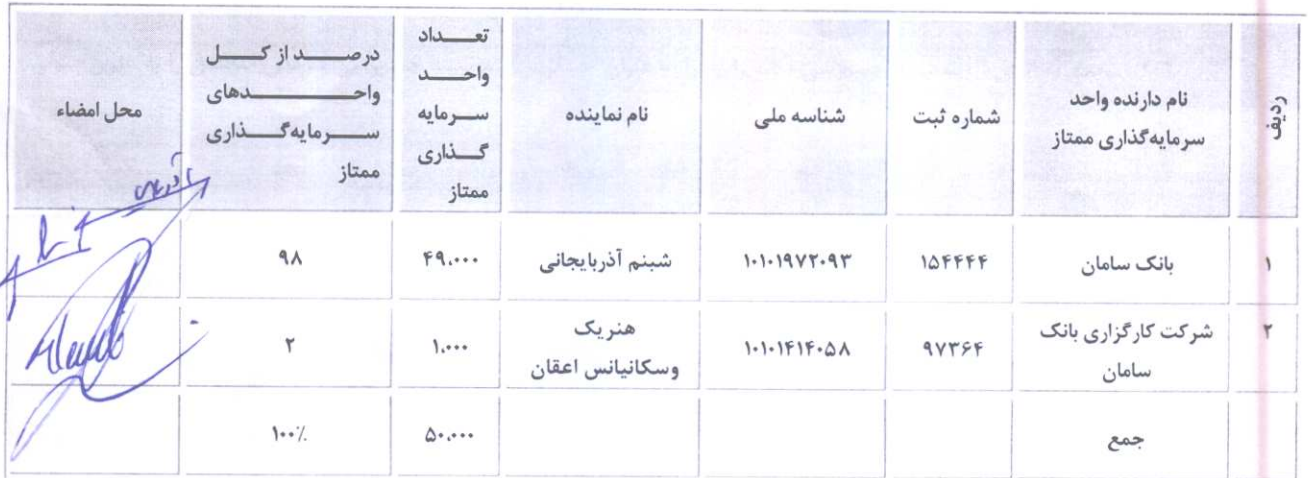 ردیف
نام دارنده واحد
سرمایه‌گذاری ممتاز
شماره ثبت
شناسه ملی
نام نماینده
تعداد
واحد
سرمایه
گذاری
ممتاز
درصد از کل
واحدهای
سرمایه‌گذاری
ممتاز
محل امضاء
۱
بانک سامان
۱۵۴۴۴۴
۱۰۱۰۱۹۷۲۰۹۳
شبنم آذربایجانی
۴۹،۰۰۰
۹۸
۲
شرکت کارگزاری بانک
سامان
۹۷۳۶۴
۱۰۱۰۱۴۱۴۰۵۸
هنریک
وسکانیانس اعقان
۱،۰۰۰
۲
جمع
۵۰،۰۰۰
۱۰۰٪